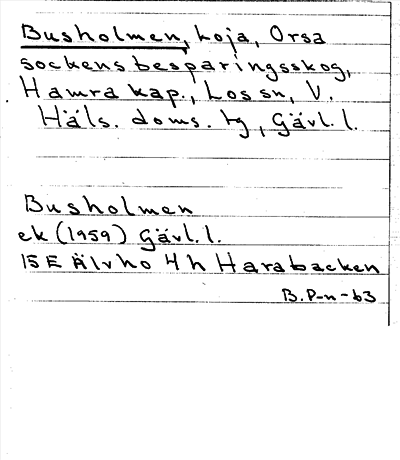 Busholmen, Loja, Orsa
sockens besparingsskog,
Hamra kap., Los sn, V.
Häls. doms. tg, Gävl. l.
Busholmen
ek (1959) Gävl. l.
15 E Älvho 4 h Harabacken
B. P-n -63